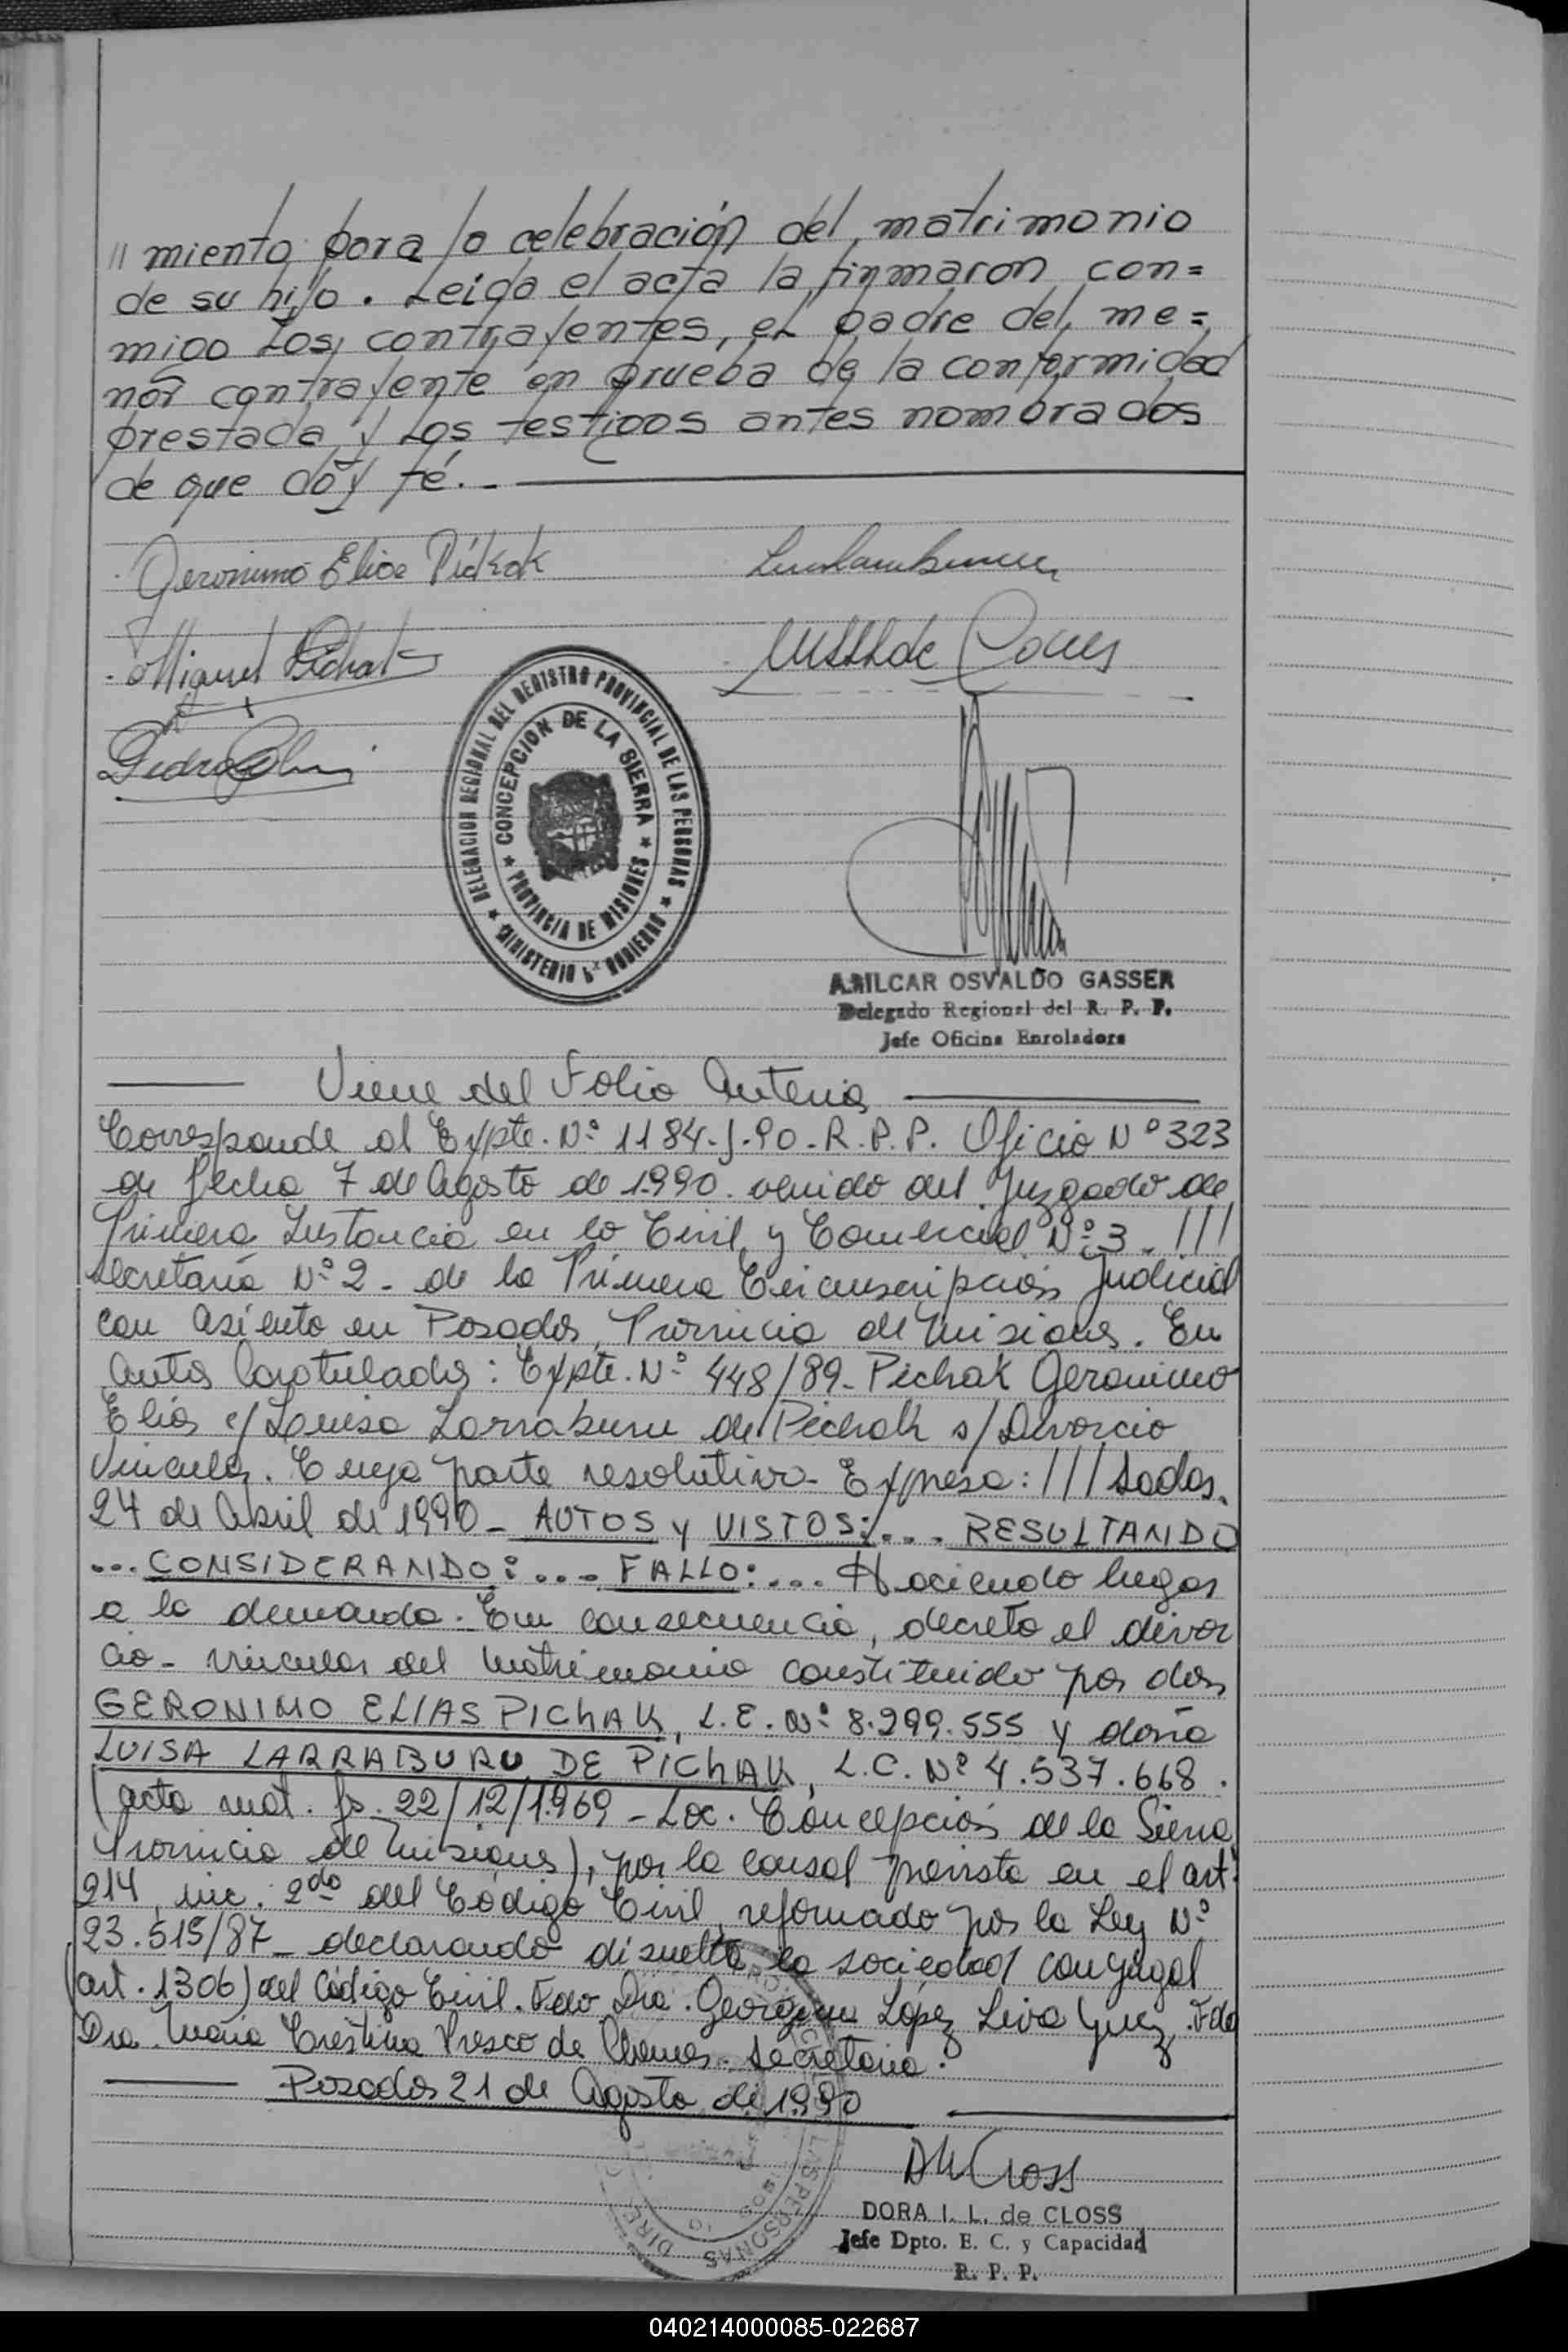 // miento para la celebración del matrimonio
de su hijo. Leida el acta la firmaron con=
migo Los contrayentes, el padre del me=
nor contrayente en prueba de la conformidad
prestada y Los testigos antes nombrados
de que doy fé.-
Geronimo Elias Pichak
Miguel Pichak
Pedro
DELEGACION REGIONAL DEL REGISTRO PROVINCIAL DE LAS PERSONAS
★ MINISTERIO DE GOBIERNO ★
CONCEPCION DE LA SIERRA
★ PROVINCIA DE MISIONES ★
AMILCAR OSVALDO GASSER
Delegado Regional del R. P. P.
Jefe Oficina Enroladora
Viene del Folio Anterior
Corresponde al Expte. Nº 1184-J-90-R.P.P. Oficio Nº 323
de fecha 7 de Agosto de 1.990. venido del Juzgado de
Primera Instancia en lo Civil y Comercial Nº 3. ///
Secretaría Nº 2- de la Primera Circunscripción Judicial
con asiento en Posadas, Provincia de Misiones. En
Autos Carotulados: Expte. Nº 448/89- Pichak Geronimo
Elias c/ Louisa Larraburu de Pichak s/ Divorcio
Vincular. Cuya parte resolutiva- Expresa: ///sadas,
24 de Abril de 1990- AUTOS y VISTOS:... RESULTANDO
... CONSIDERANDO:.... FALLO:... Haciendo lugar
a la demanda. En consecuencia, decreto el divor
cio- vincular del matrimonio constituido por don
GERONIMO ELIAS PICHAK, L.E. Nº 8.299.555 y doña
LUISA LARRABURU DE PICHAK, L.C. Nº 4.537.668.
(acta mat. fs. 22/12/1.969 - Loc. Concepción de la Sierra
Provincia de Misiones), por la causal prevista en el art.
214, inc. 2do del Código Civil, reformado por la Ley Nº
23.515/87- declarando disuelta la sociedad conyugal
(art. 1306) del Código Civil. Fdo Dra. Georgina López Leiva Juez. Fdo
Dra. María Cristina de Secretaria.
Posadas 21 de Agosto de 1990
LAS PERSONAS
DORA I. L. de CLOSS
Jefe Dpto. E. C. y Capacidad
R. P. P.
040214000085-022687